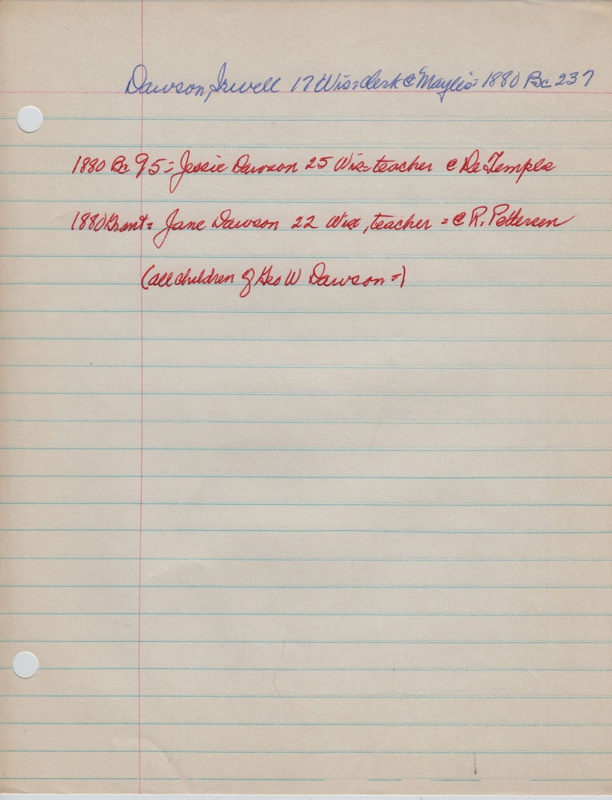 Dawson, Irwell 17 Wis= clerk @ Maylis= 1880 Bc 237
1880 Bc 95= Jessie Dawson 25 Wis= teacher @ De Temple
1880 Grant= Jane Dawson 22 Wis, teacher = @ R. Pettersen
(all children of Geo W Dawson=)